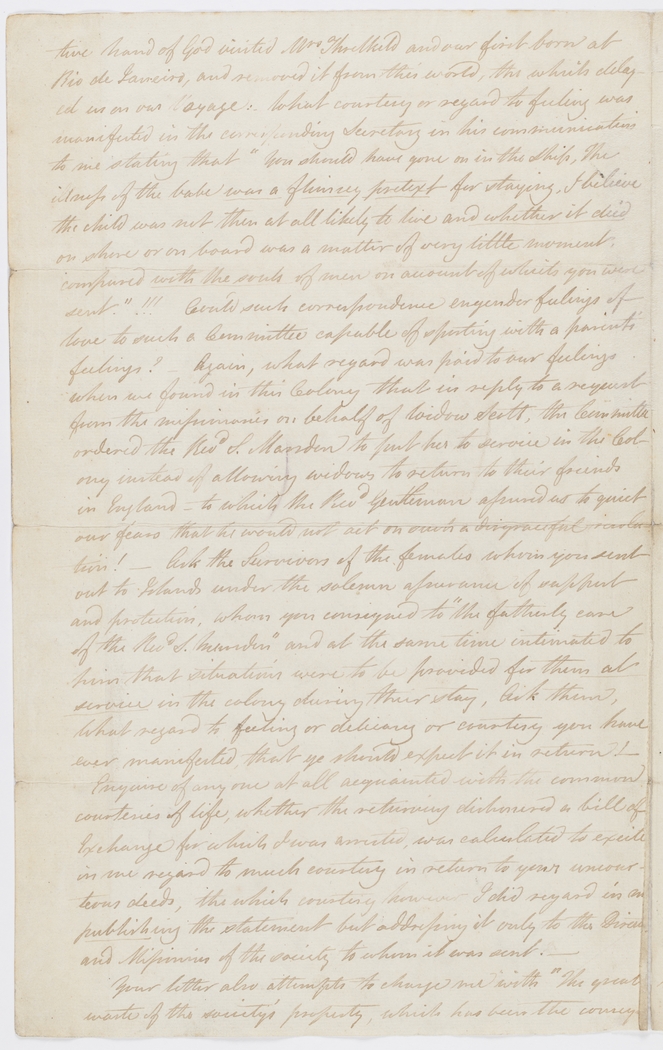 tive hand of God visited Mrs Threlkeld and our first born at
Rio de Janeiro, and removed it from this world, the which delay-
ed us on our Voyage:- What courtesy or regard to feeling was
manifested in the corresponding Secretary in his communication
to me stating that "You should have gone on in the ship, The
ilness of the babe was a flimsey pretext for staying, I believe
the child was not then at all likely to live and whether it died
on shore or on board was a matter of very little moment
compared with the souls of men on account of which you were
sent." !!! Could such correspondence engender feelings of
love to such a Committee capable of sporting with a parents'
feelings? - Again, what regard was paid to our feelings
when we found in this Colony that in reply to a request
from the missionaries on behalf of Widow Scott, the Committee
ordered the Revd S. Marsden to put her to service in the Col-
ony instead of allowing widows to return to their friends
in England - to which the Revd Gentleman assured us to quiet
our fears that he would not act on such a disgraceful resolu-
tion! - Ask the Survivors of the females whom you sent
out to Islands under the solemn assurance of support
and protection, whom you consigned to "the fatherly care
of the Revd S. Marsden" and at the same time intimated to
him that situations were to be provided for them at
service in the colony during their stay, Ask them,
What regard to feeling or delicacy or courtesy you have
ever manifested, that ye should expect it in return! -
Enquire of any one at all acquainted with the common
courtesies of life, whether the returning dishonered a bill of
Exchange for which I was arrested, was calculated to excite
in me regard to much courtesy in return to your uncour-
teous deeds, the which courtesy however I did regard in
publishing the statement but addressing it only to the
and Missionaries of the society to whom it was sent. -
Your letter also attempts to charge me with "The great
waste of the society's property, which has been the